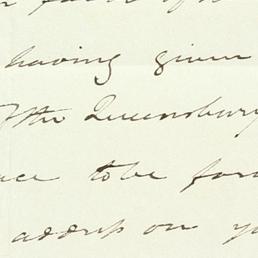 having given
of the Queensbury
to be for
address on y